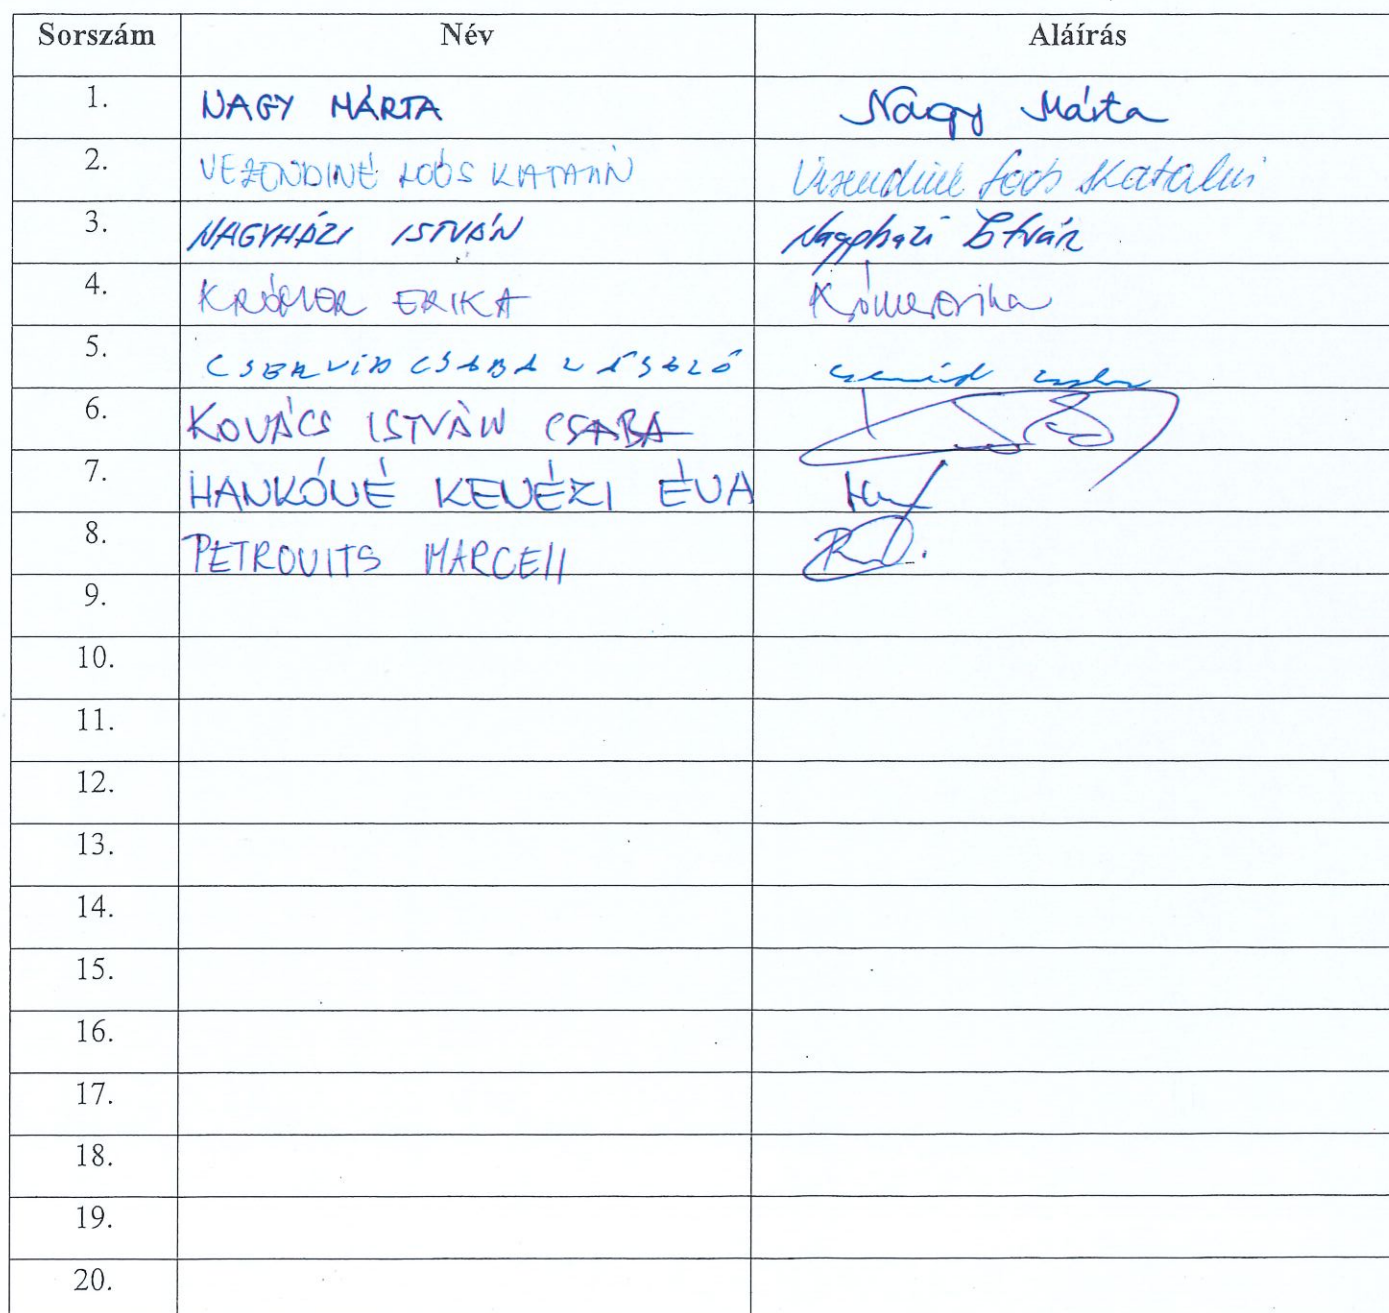 Sorszám Név Aláírás
1. NAGY MÁRTA Nagy Márta
2. VEZENDINÉ LOÓS KATALIN Vezendiné Loós Katalin
3. NAGYHÁZI ISTVÁN Nagyházi István
4. KRÓMER ERIKA Krómer Erika
5. CSERVID CSABA LÁSZLÓ
6. KOVÁCS ISTVÁN CSABA
7. HANKÓNÉ KENÉZI ÉVA
8. PETROVITS MARCEll
9.
10.
11.
12.
13.
14.
15.
16.
17.
18.
19.
20.